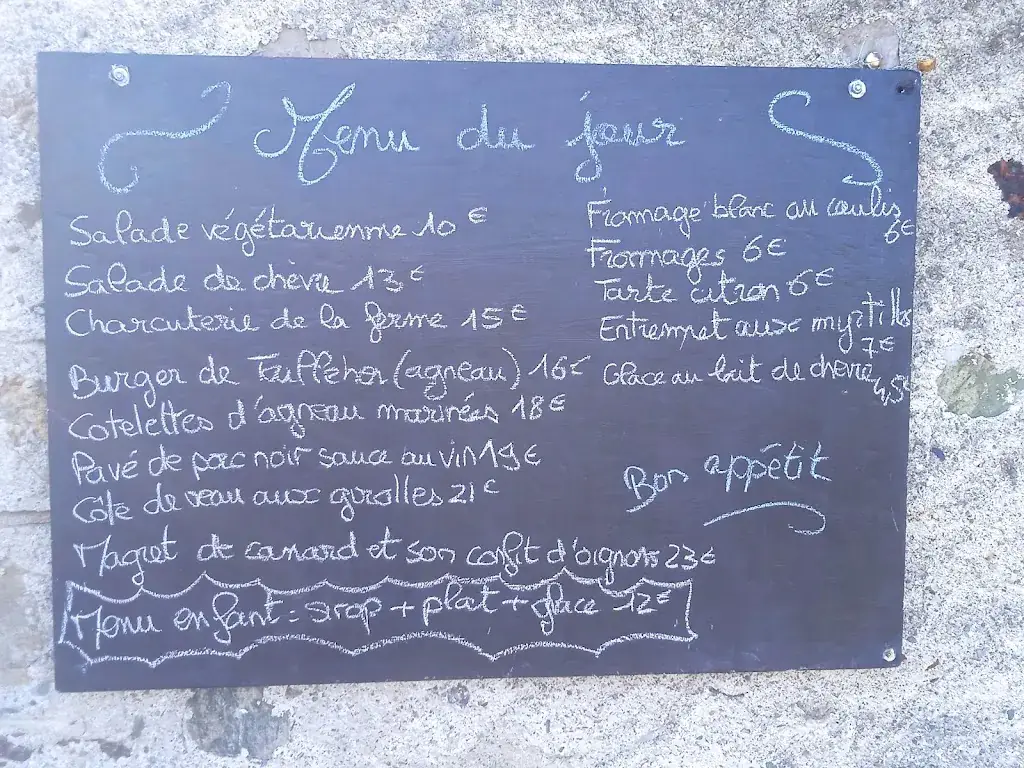 Menu du jour
Salade végétarienne 10 €
Salade de chèvre 13 €
Charcuterie de la ferme 15 €
Burger de (agneau) 16 €
Cotelettes d'agneau marinées 18 €
Pavé de porc noir sauce au vin 19 €
Côte de veau aux girolles 21 €
Magret de canard et son confit d'oignons 23 €
Menu enfant : sirop + plat + glace 12 €
Fromage blanc au coulis
6 €
Fromages 6 €
Tarte citron 6 €
Entremet aux myrtilles
7 €
Glace au lait de chèvre
4,5 €
Bon appétit